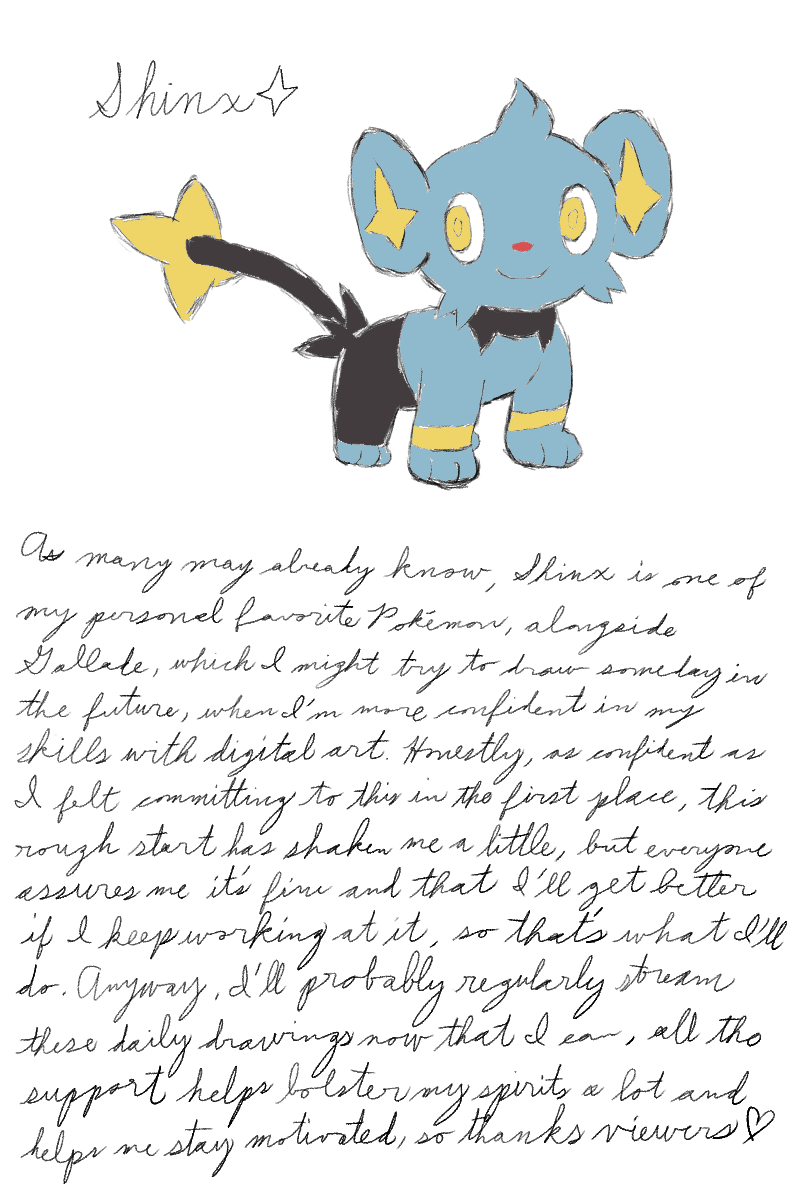 Shinx
As many may already know, Shinx is one of
my personal favorite Pokémon, alongside
Gallade, which I might try to draw someday in
the future, when I'm more confident in my
skills with digital art. Honestly, as confident as
I felt committing to this in the first place, this
rough start has shaken me a little, but everyone
assures me it's fine and that I'll get better
if I keep working at it, so that's what I'll
do. Anyway, I'll probably regularly stream
these daily drawings now that I can, all the
support helps bolster my spirits a lot and
helps me stay motivated, so thanks viewers♡